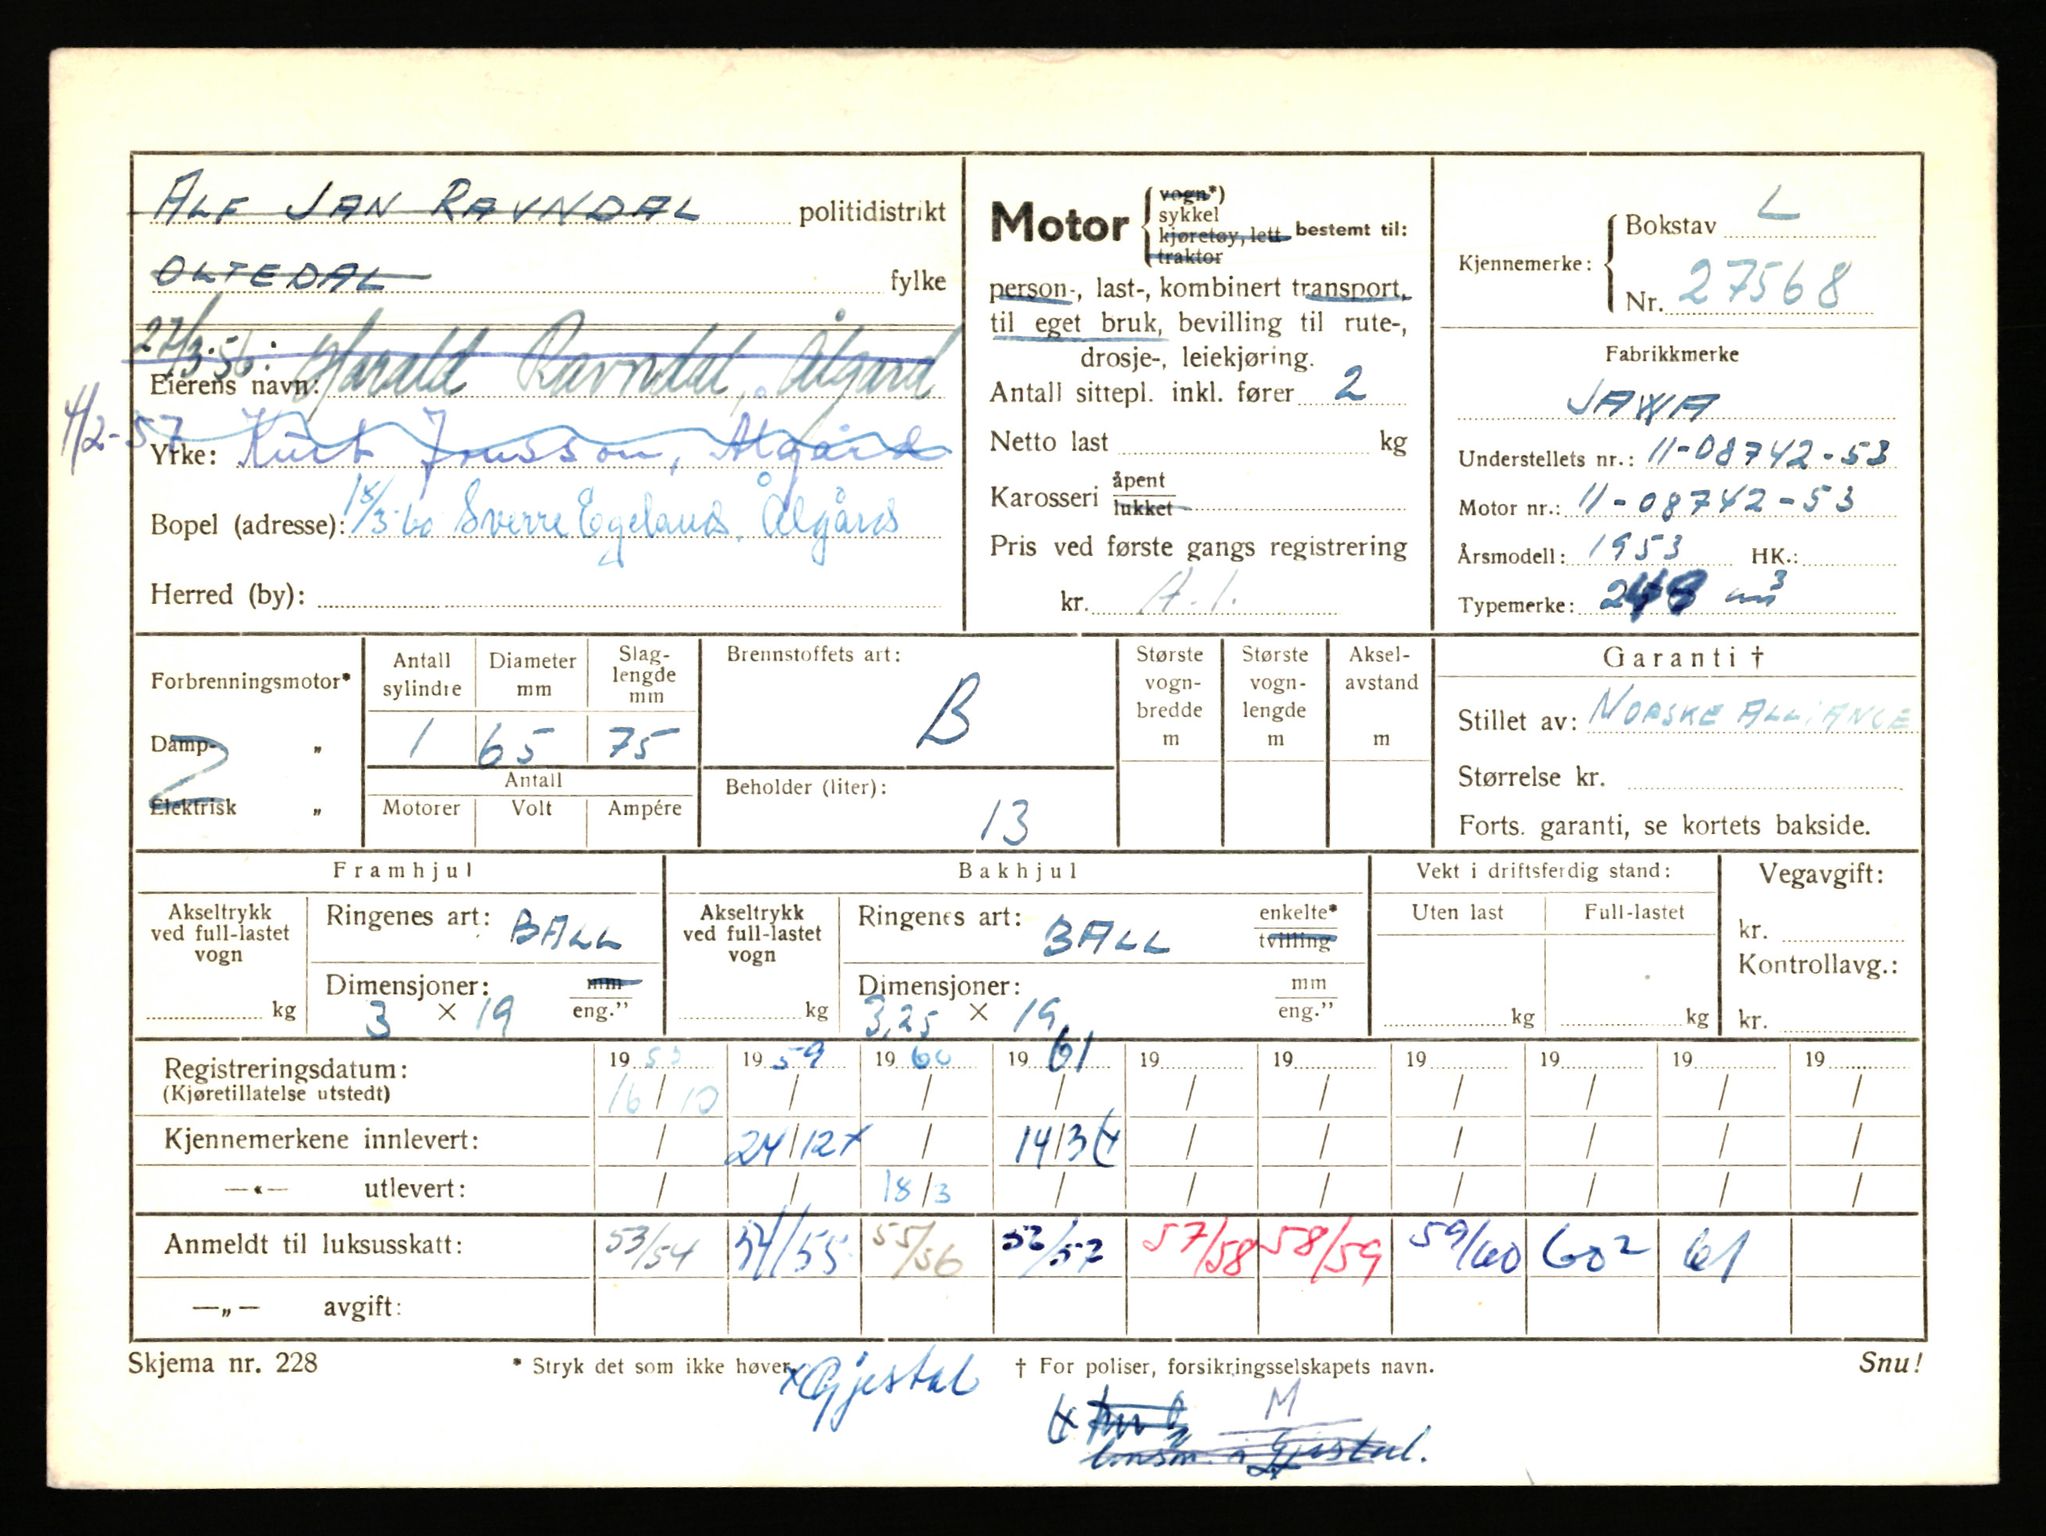 ALF JAN RAVNDAL politidistrikt
OLTEDAL fylke
27/3-56: Harald Ravndal, Ålgård
Eierens navn:
4/2-57 Kurt Jonsson, Ålgård
Yrke:
Bopel (adresse): 18/3-60 Sverre Egeland, Ålgård
Herred (by):
Motor { vogn*) sykkel kjøretøy, lett traktor bestemt til:
person-, last-, kombinert transport,
til eget bruk, bevilling til rute-,
drosje-, leiekjøring.
Antall sittepl. inkl. fører 2
Netto last kg
Karosseri åpent lukket
Pris ved første gangs registrering
kr. A.1.
Kjennemerke: { Bokstav L
Nr. 27568
Fabrikkmerke
JAWA
Understellets nr.: 11-08742-53
Motor nr.: 11-08742-53
Årsmodell: 1953 HK.:
Typemerke: 248 cm³
Forbrenningsmotor*
Damp- „
Elektrisk „
Antall sylindre Diameter mm Slag-lengde mm
1 65 75
Antall
Motorer Volt Ampére
Brennstoffets art:
B
Beholder (liter):
13
Største vogn-bredde m
Største vogn-lengde m
Aksel-avstand m
Garanti †
Stillet av: NORSKE ALLIANCE
Størrelse kr.
Forts. garanti, se kortets bakside.
Framhjul
Akseltrykk ved full-lastet vogn
kg
Ringenes art: BALL
Dimensjoner: mm
3 × 19 eng."
Bakhjul
Akseltrykk ved full-lastet vogn
kg
Ringenes art: BALL enkelte* tvilling
Dimensjoner: mm
3,25 × 19 eng."
Vekt i driftsferdig stand:
Uten last Full-lastet
kg kg
Vegavgift:
kr.
Kontrollavg.:
kr.
Registreringsdatum: 1953 1959 1960 1961 19 19 19 19 19 19
(Kjøretillatelse utstedt) 16/10 / / / / / / / / /
Kjennemerkene innlevert: / 24/12 x / 14/3 / / / / / /
—«— utlevert: / / 18/3 / / / / / / /
Anmeldt til luksusskatt: 53/54 54/55 55/56 56/57 57/58 58/59 59/60 60² 61
—„— avgift:
Skjema nr. 228 * Stryk det som ikke høver. † For poliser, forsikringsselskapets navn. Snu!
x Gjestal
M
lensm. i Gjestal.